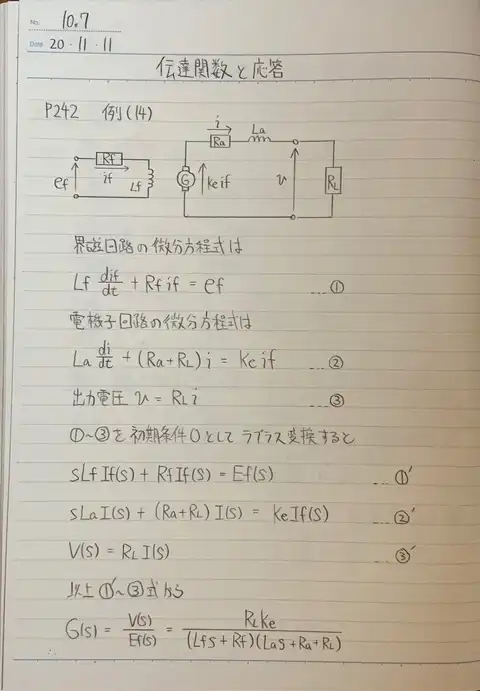 No. 10.7
Date 20・11・11
伝達関数と応答
P242 例(14)
Rf
if
ef
Lf
i
Ra
La
G
Keif
v
RL
界磁回路の微分方程式は
Lf dif/dt + Rf if = ef ...①
電機子回路の微分方程式は
La di/dt + (Ra+RL) i = Ke if ...②
出力電圧 v = RL i ③
①~③を初期条件0としてラプラス変換すると
sLf If(s) + Rf If(s) = Ef(s) ...①′
sLa I(s) + (Ra+RL) I(s) = Ke If(s) ...②′
V(s) = RL I(s) ...③′
以上①′~③式から
G(s) = V(s)/Ef(s) = RL Ke/(Lf s + Rf)(La s + Ra + RL)